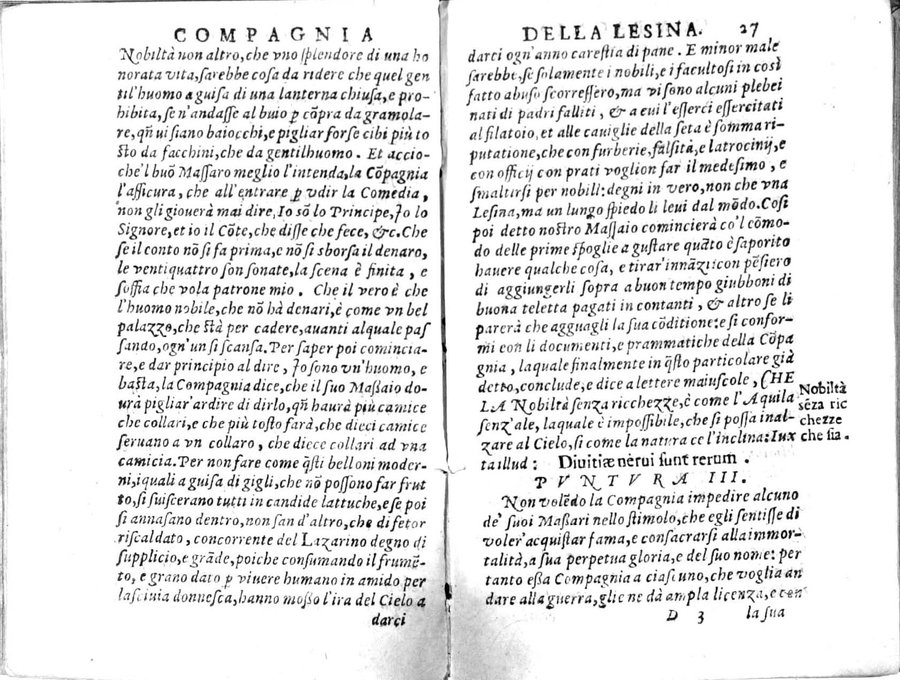 COMPAGNIA
Nobiltà non altro, che vno ſplendore di una ho
norata vita, ſarebbe coſa da ridere che quel gen
til'huomo a guiſa di una lanterna chiuſa, e pro-
hibita, ſe n'andaſſe al buio p cõpra da gramola-
re, qñ ui siano baiocchi, e pigliar forſe cibi più to
ſto da facchini, che da gentilhuomo. Et accio-
che'l buõ Maſſaro meglio l'intenda, la Cõpagnia
l'aſſicura, che all'entrare p vdir la Comedia,
non gli giouerà mai dire, Io sõ lo Principe, Io lo
Signore, et io il Cõte, che diſſe che fece, &c. Che
ſe il conto nõ ſi fa prima, e nõ ſi sborſa il denaro,
le ventiquattro ſon ſonate, la ſcena è finita, e
ſoffia che vola patrone mio. Che il vero è che
l'huomo nobile, che nõ hà denari, è come vn bel
palazzo, che ſtà per cadere, auanti al quale paſ
ſando, ogn'un ſi scanſa. Per ſaper poi comincia-
re, e dar principio al dire, Io ſono vn'huomo, e
baſta, la Compagnia dice, che il ſuo Maßaio do-
urà pigliar'ardire di dirlo, qñ haurà più camice
che collari, e che più toſto farà, che dieci camice
ſeruano a vn collaro, che diece collari ad vna
camicia. Per non fare come q̃ſti belloni moder-
ni, i quali a guiſa di gigli, che nõ poſſono far frut
to, ſi ſuiſcerano tutti in candide lattuche, e ſe poi
ſi annaſano dentro, non ſan d'altro, che di fetor
riſcaldato, concorrente del Lazarino degno di
ſupplicio, e grãde, poiche conſumando il frumẽ-
to, e grano dato p viuere humano in amido per
laſciuia donneſca, hanno moßo l'ira del Cielo a
darci
DELLA LESINA. 27
darci ogn'anno careſtia di pane. E minor male
ſarebbe, ſe ſolamente i nobili, e i facultoſi in coſì
fatto abuſo ſcorreſſero, ma vi ſono alcuni plebei
nati di padri falliti, & a cui l'eſſerci eſſercitati
al filatoio, et alle cauiglie della ſeta è ſomma ri-
putatione, che con furberie, falſità, e latrocinij, e
con officij con prati voglion far il medeſimo, e
ſmaltirſi per nobili: degni in vero, non che vna
Leſina, ma un lungo ſpiedo li leui dal mõdo. Coſi
poi detto noſtro Maſſaio comincierà co'l cõmo-
do delle prime ſpoglie a guſtare quãto è ſaporito
hauere qualche coſa, e tirar'innãzi: con pẽſiero
di aggiungerli ſopra a buon tempo giubboni di
buona teletta pagati in contanti, & altro ſe li
parerà che agguagli la ſua cõditione: e ſi confor-
mi con li documenti, e prammatiche della Cõpa
gnia, la quale finalmente in q̃ſto particolare già
detto, conclude, e dice a lettere maiuscole, CHE
LA Nobiltà ſenza ricchezze, è come l'Aquila
ſenz'ale, la quale è impoſſibile, che ſi poſſa inal-
zare al Cielo, ſi come la natura ce l'inclina: Iux
ta illud: Diuitiæ nerui ſunt rerum.
Nobiltà
sẽza ric
chezze
che ſia.
PVNTVRA III.
Non volẽdo la Compagnia impedire alcuno
de' ſuoi Maßari nello ſtimolo, che egli ſentiſſe di
voler'acquiſtar fama, e conſacrarſi alla immor-
talità, a ſua perpetua gloria, e del ſuo nome: per
tanto eßa Compagnia a ciaſcuno, che voglia an
dare alla guerra, gli ne dà ampla licenza, e con
D 3 la ſua